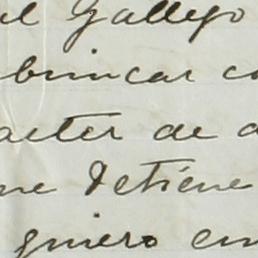 al Gallego
brincar co
acter de a
me detiene
quiero en